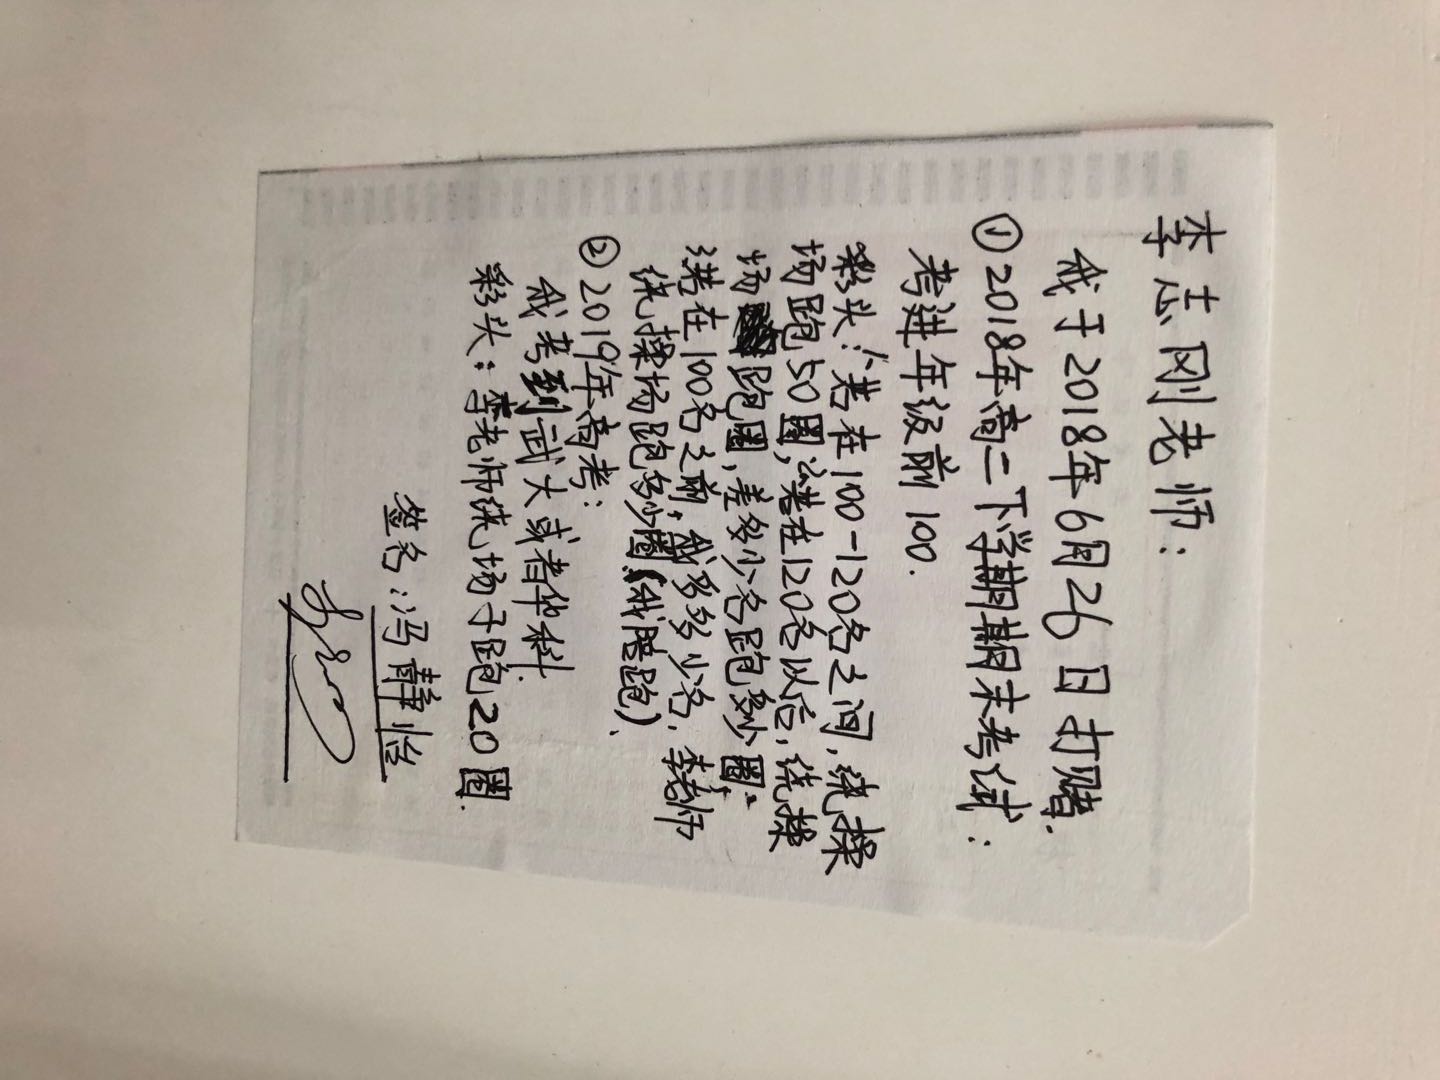 李志刚老师：
我于2018年6月26日打赌.
①2018年高二下学期期末考试：
考进年级前100.
彩头：1°若在100-120名之间,绕操
场跑50圈,2°若在120名以后,绕操
场跑圈,差多少名跑多少圈.
3°若在100名之前,我多多少名,李老师
绕操场跑多少圈(我陪跑).
②2019年高考：
我考到武大或者华科.
彩头：李老师绕场子跑20圈.
签名：冯静怡